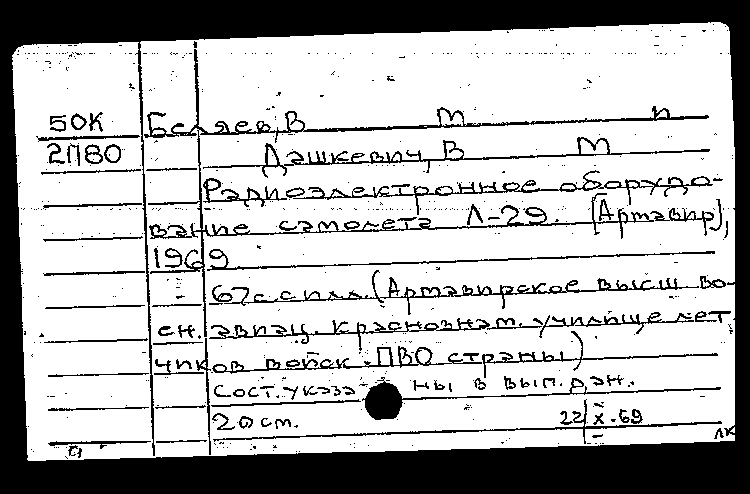 50К Беляев, В m n
2ПВО Дашкевич, В m
Радиоэлектронное оборудо-
вание самолета Л-29. [Армавир],
1969.
67с. с илл. (Армавирское высш. во-
ен. авиац. краснознам. училище лет
чиков войск ПВО страны)
Сост. указаны в вып. дан.
20 см. 22/X-69
ЛК